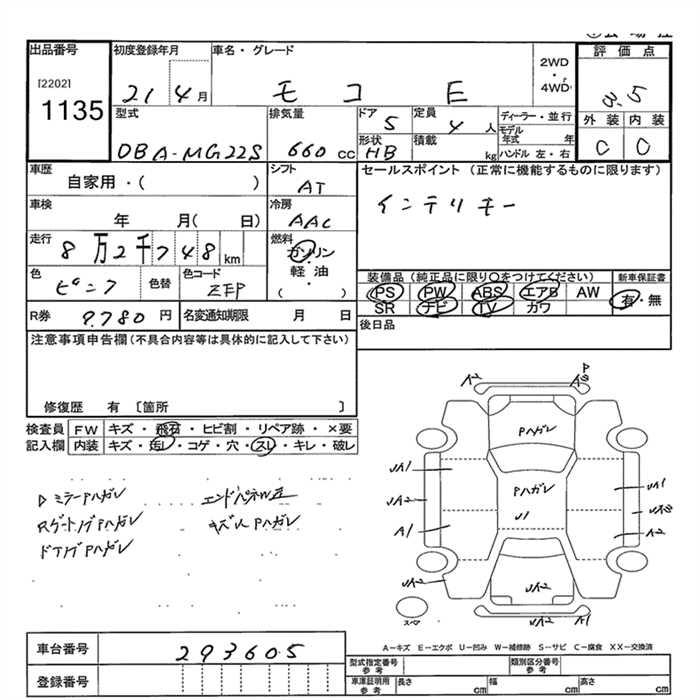 出品番号
[2202]
1135
初度登録年月
21 4月
車名・グレード
モコ E
2WD
・
4WD
評価点
3.5
外装 内装
C C
型式
DBA-MG22S
排気量
660 cc
ドア
5
定員
4 人
形状
HB
積載
kg
ディーラー・並行
モデル年式 年
ハンドル 左・右
車歴
自家用・( )
シフト
AT
セールスポイント (正常に機能するものに限ります)
インテリキー
車検
年 月( 日)
冷房
AAC
走行
8万2千748 km
燃料
ガソリン
・
軽・油
( )
色
ピンク
色替
色コード
ZFP
装備品 (純正品に限り〇をつけてください)
PS PW ABS エアB AW
SR ナビ TV カワ
新車保証書
有・無
R券 9,780 円
名変通知期限 月 日
後日品
注意事項申告欄 (不具合内容等は具体的に記入して下さい)
修復歴 有 〔箇所 〕
検査員記入欄
FW キズ・飛石・ヒビ割・リペア跡・×要
内装 キズ・汚レ・コゲ・穴・スレ・キレ・破レ
ミラーPハガレ
RゲートノブPハガレ
ドアノブPハガレ
PハガレA2
P
Pハガレ
Pハガレ
U1
UA1
UA2
A1
UA2
UA1
A2
UA2
UA2 A1
スペア
A-キズ E-エクボ U-凹み W-補修跡 S-サビ C-腐食 XX-交換済
車台番号
293605
登録番号
型式指定番号
参考
類別区分番号
参考
車庫証明用
参考
長さ cm
幅 cm
高さ cm